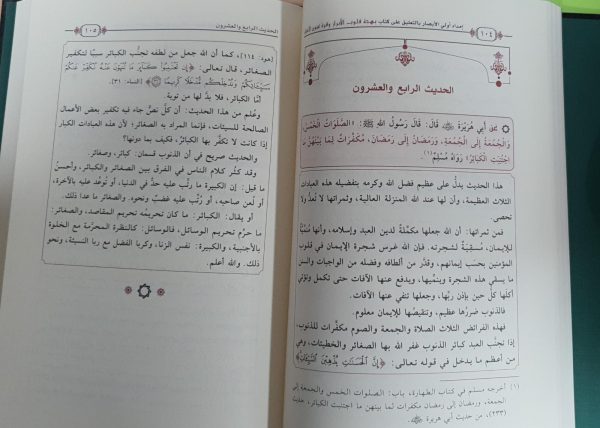 ١٠٤
إمداد أولي الأبصار بالتعليق على كتاب بهجة قلوب الأبرار وقرة عيون
الحديث الرابع والعشرون
عن أبي هريرة ﵁ قال: قال رسول الله ﷺ: «الصلوات الخمس،
والجمعة إلى الجمعة، ورمضان إلى رمضان، مكفرات لما بينهن ما
اجتنبت الكبائر» رواه مسلم(١).
هذا الحديث يدل على عظيم فضل الله وكرمه بتفضيله هذه العبادات
الثلاث العظيمة، وأن لها عند الله المنزلة العالية، وثمراتها لا تعد ولا
تحصى.
فمن ثمراتها: أن الله جعلها مكملة لدين العبد وإسلامه، وأنها منمية
للإيمان، مسقية لشجرته. فإن الله غرس شجرة الإيمان في قلوب
المؤمنين بحسب إيمانهم، وقدر من ألطافه وفضله من الواجبات والسنن
ما يسقي هذه الشجرة وينميها، ويدفع عنها الآفات حتى تكمل وتؤتي
أكلها كل حين بإذن ربها، وجعلها تنفي عنها الآفات.
فالذنوب ضررها عظيم، وتنقيصها للإيمان معلوم.
فهذه الفرائض الثلاث الصلاة والجمعة والصوم مكفرات للذنوب،
إذا تجنب العبد كبائر الذنوب غفر الله بها الصغائر والخطيئات، وهي
من أعظم ما يدخل في قوله تعالى: ﴿إِنَّ الْحَسَنَاتِ يُذْهِبْنَ السَّيِّئَاتِ﴾
(١) أخرجه مسلم في كتاب الطهارة، باب: الصلوات الخمس والجمعة إلى
الجمعة، ورمضان إلى رمضان مكفرات لما بينهن ما اجتنبت الكبائر،
(٢٣٣)، من حديث أبي هريرة ﵁.
الحديث الرابع والعشرون
١٠٥
[هود: ١١٤]، كما أن الله جعل من لطفه تجنب الكبائر سببا لتكفير
الصغائر، قال تعالى: ﴿إِن تَجْتَنِبُوا كَبَائِرَ مَا تُنْهَوْنَ عَنْهُ نُكَفِّرْ عَنكُمْ
سَيِّئَاتِكُمْ وَنُدْخِلْكُم مُّدْخَلًا كَرِيمًا﴾ [النساء: ٣١].
أما الكبائر، فلا بد لها من توبة.
وعلم من هذا الحديث: أن كل نص جاء فيه تكفير بعض الأعمال
الصالحة للسيئات، فإنما المراد به الصغائر؛ لأن هذه العبادات الكبار
إذا كانت لا تكفر بها الكبائر، فكيف بما دونها؟
والحديث صريح في أن الذنوب قسمان: كبائر، وصغائر.
وقد كثر كلام الناس في الفرق بين الصغائر والكبائر، وأحسن
ما قيل: إن الكبيرة ما رتب عليه حد في الدنيا، أو توعد عليه بالآخرة،
أو لعن صاحبه، أو رتب عليه غضب ونحوه. والصغائر ما عدا ذلك.
أو يقال: الكبائر: ما كان تحريمه تحريم المقاصد، والصغائر:
ما حرم تحريم الوسائل، فالوسائل: كالنظرة المحرمة مع الخلوة
بالأجنبية، والكبيرة: نفس الزنا، وكربا الفضل مع ربا النسيئة، ونحو
ذلك. والله أعلم.